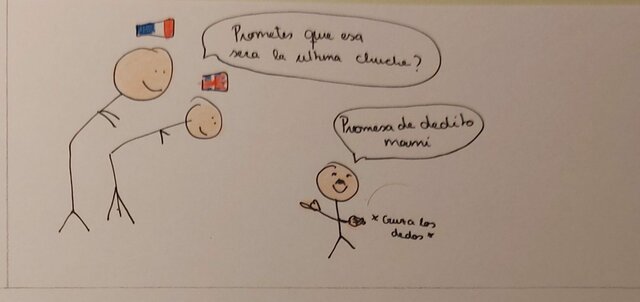 Prometes que esa
sera la ultima chuche?
Promesa de dedito
mami
*Cruza los
dedos*